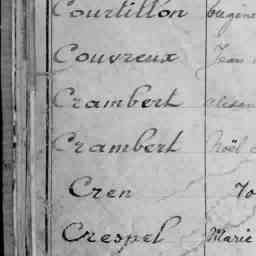 Courtillon Eugène
Couvreux Jean
Crambert
Crambert Noël
Cren
Crespel Marie